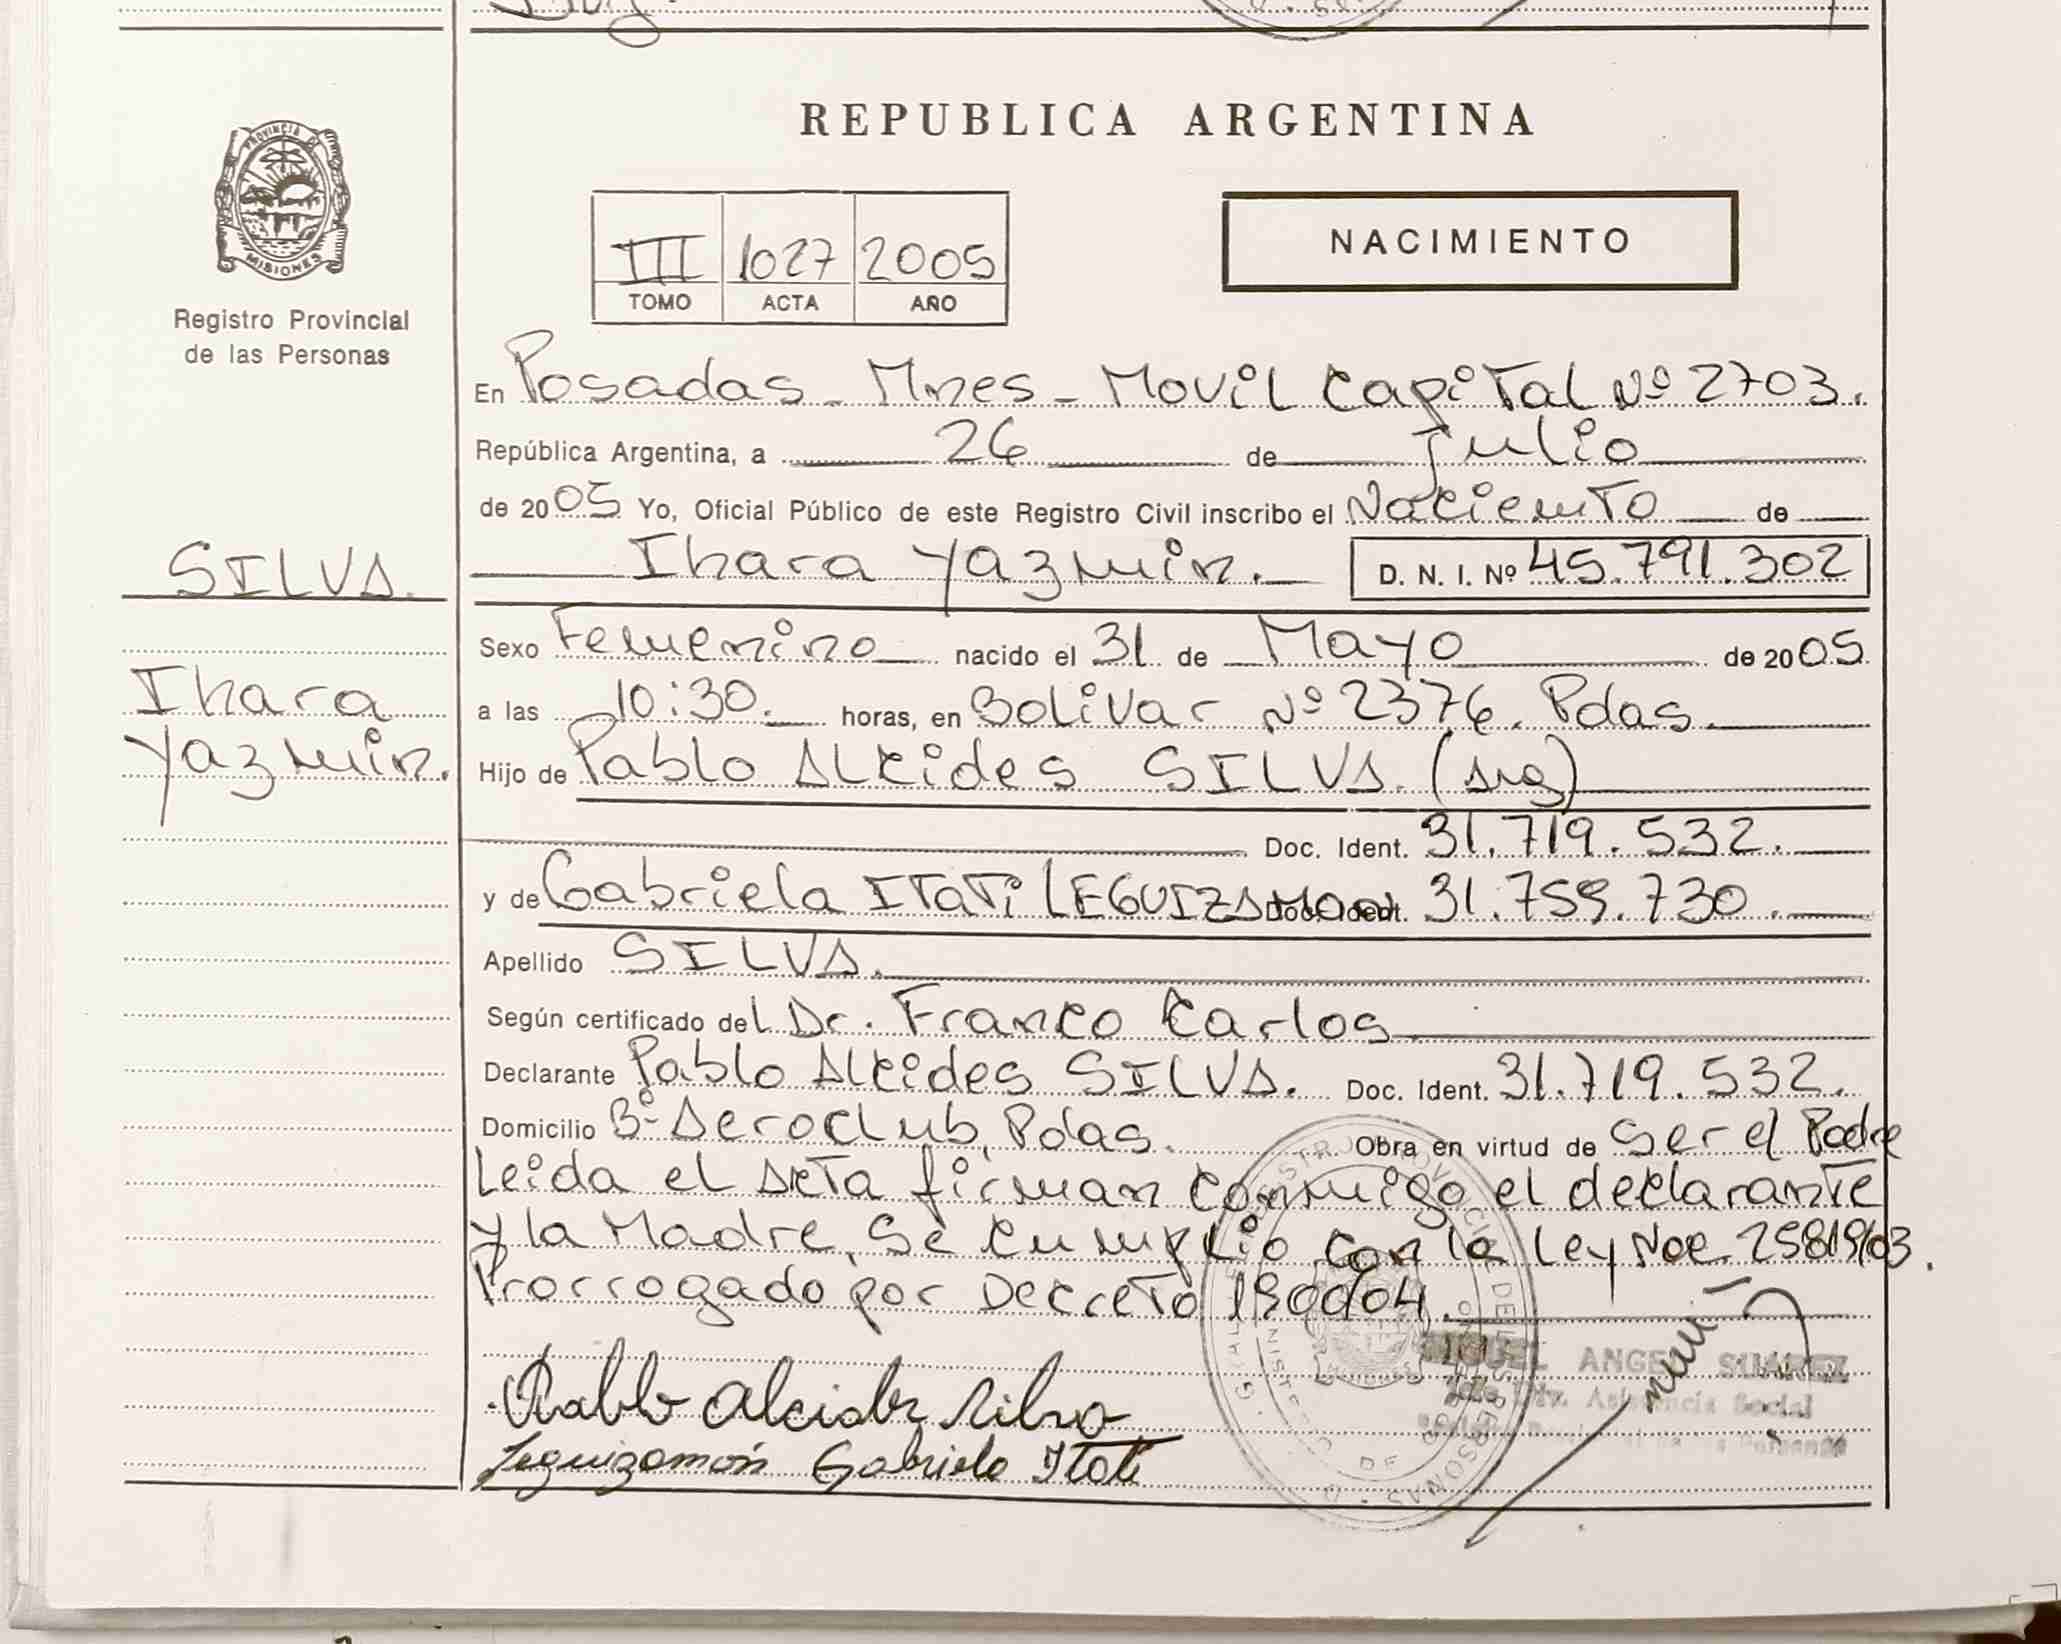 REPUBLICA ARGENTINA
PROVINCIA DE
MISIONES
Registro Provincial
de las Personas
III 1027 2005
TOMO ACTA AÑO
NACIMIENTO
En Posadas - Mnes - Movil Capital Nº 2703.
República Argentina, a 26 de Julio
de 2005 Yo, Oficial Público de este Registro Civil inscribo el Naciemto de
SILVA.
Ihara Yazmin. D. N. I. Nº 45.791.302
Sexo Femenino nacido el 31 de Mayo de 2005
Ihara
Yazmin.
a las 10:30. horas, en Bolivar Nº 2376. Pdas.
Hijo de Pablo Alcides SILVA. (Arg)
Doc. Ident. 31.719.532.
y de Gabriela Itati LEGUIZAMON Doc. Ident. 31.759.730.
Apellido SILVA.
Según certificado del Dr. Franco Carlos
Declarante Pablo Alcides SILVA. Doc. Ident. 31.719.532.
Domicilio Bº Aeroclub, Pdas. Obra en virtud de Ser el Padre
Leida el Acta firman conmigo el declarante
y la Madre, Se cumplio con la Ley Nac. 25819/03.
Prorrogado por Decreto
Pablo Alcides Silva
Leguizamón Gabriela Itati
MIGUEL ANGEL SUAREZ
Asistencia Social